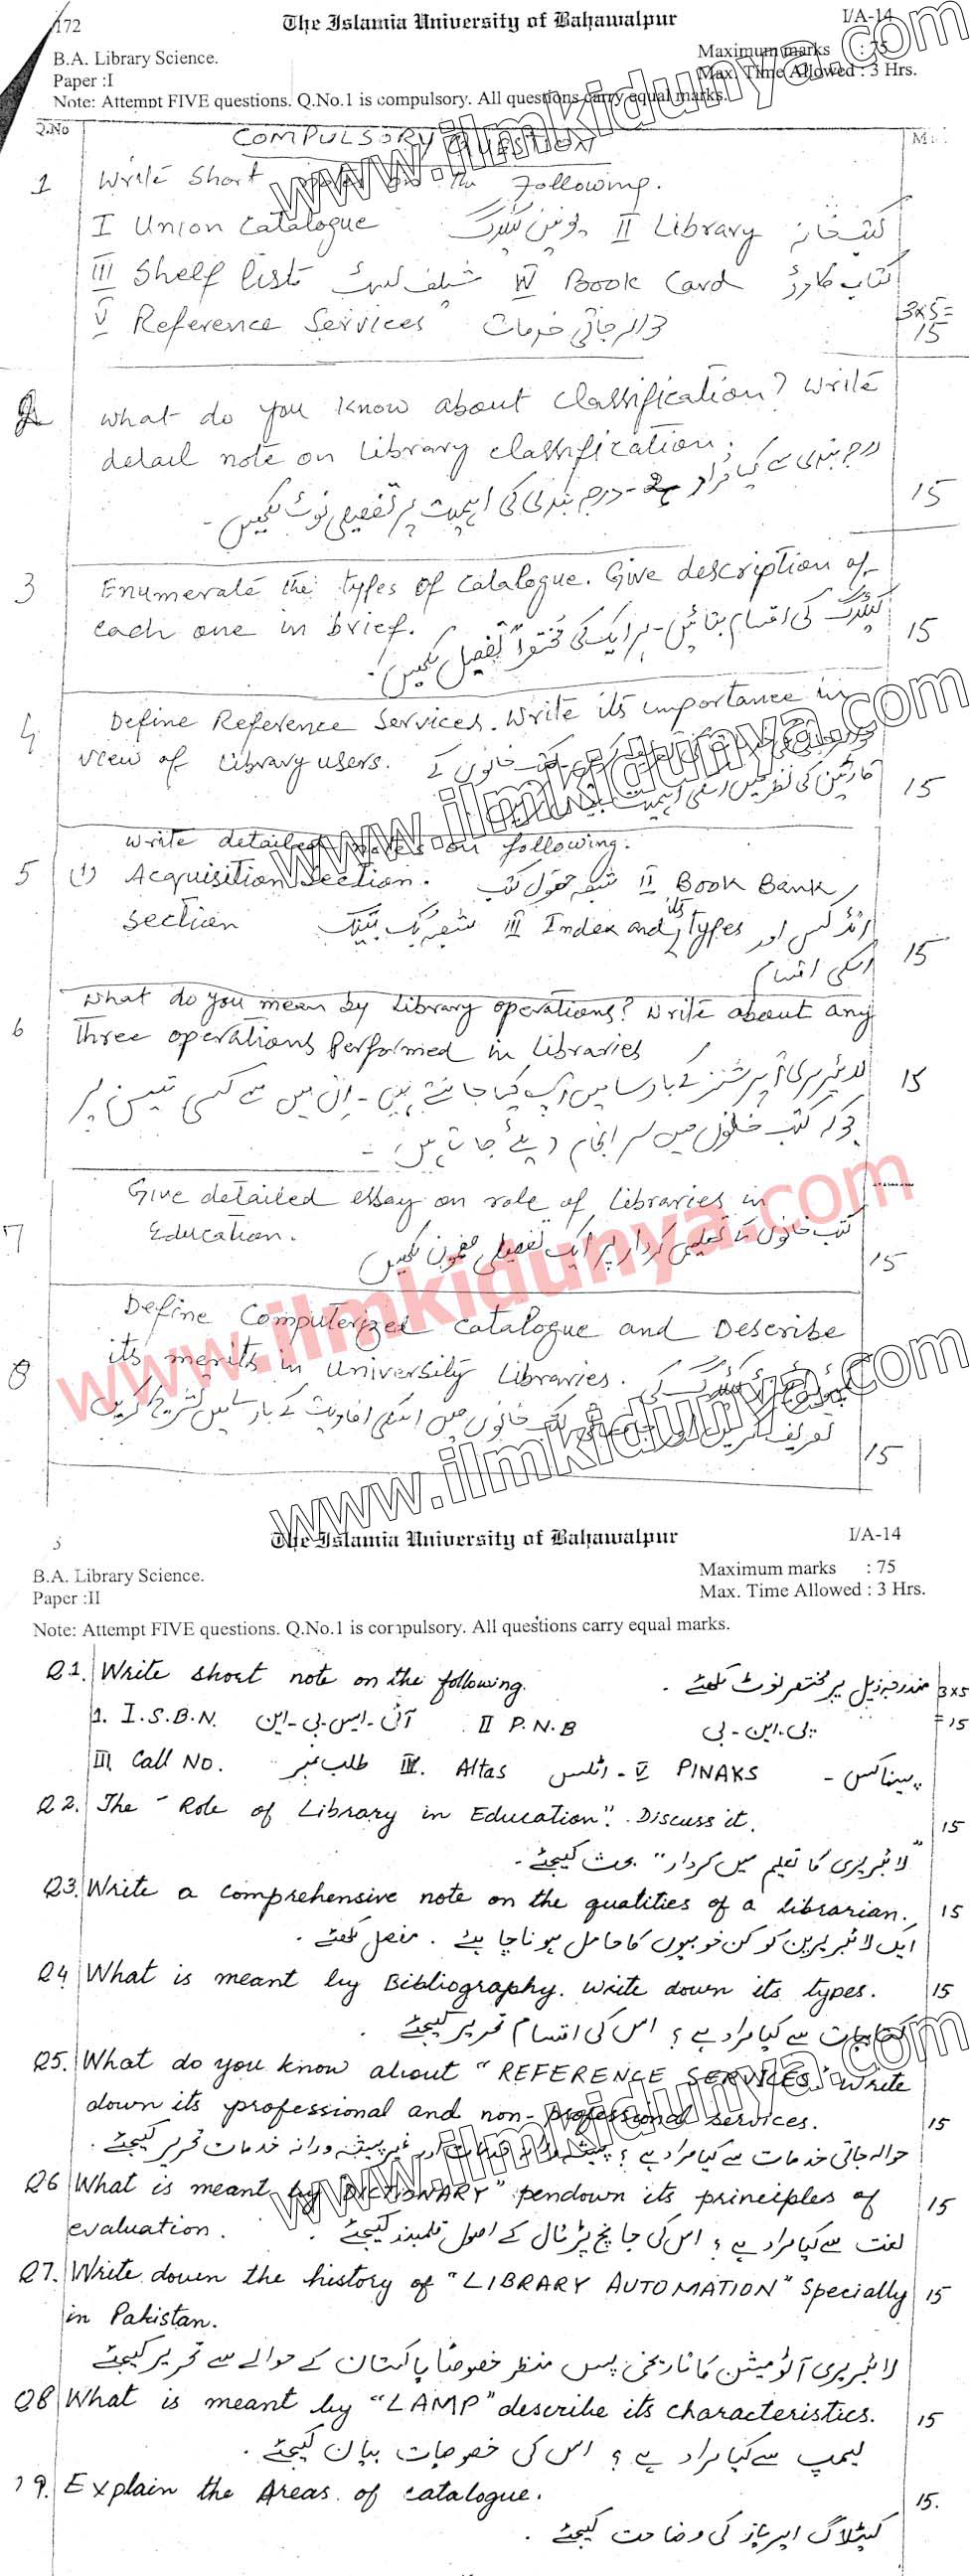 172
The Islamia University of Bahawalpur
I/A-14
B.A. Library Science.
Paper :I
Maximum marks : 75
Max. Time Allowed : 3 Hrs.
Note: Attempt FIVE questions. Q.No.1 is compulsory. All questions carry equal marks.
Q.No
COMPULSORY
1 Write Short on the following.
I Union Catalogue یونین کیٹلاگ II Library کتب خانہ
III Shelf list شیلف لسٹ IV Book Card کتاب کارڈ
V Reference Services حوالہ جاتی خدمات 3x5=
15
What do you know about Classification? Write
detail note on library classification.
درجہ بندی سے کیا مراد ہے - درجہ بندی کی اہمیت پر تفصیلی نوٹ لکھیں - 15
3 Enumerate the types of Catalogue. Give description of
each one in brief. کیٹلاگ کی اقسام بتائیں - ہر ایک کی مختصراً تفصیل لکھیں 15
4 Define Reference Services. Write its importance in
view of library users. کتب خانوں کے
قارئین کی نظر میں اسکی اہمیت 15
Write detailed notes on following.
5 (I) Acquisition Section. شعبہ حصول کتب II Book Bank
Section شعبہ بک بینک III Index and its types انڈکس اور
اسکی اقسام 15
What do you mean by Library operations? Write about any
6 Three operations performed in libraries
لائبریری آپریشنز کے بارے میں آپ کیا جانتے ہیں - ان میں سے کسی تین پر 15
جو کہ کتب خانوں میں سر انجام دیئے جاتے ہیں -
Give detailed essay on role of libraries in
7 Education. کتب خانوں کا تعلیمی کردار پر ایک تفصیلی مضمون لکھیں 15
Define Computerized Catalogue and Describe
8 its merits in University Libraries. کیٹلاگ کی
تعریف کریں کتب خانوں میں اسکی افادیت کے بارے میں تشریح کریں 15
www.ilmkidunya.com
www.ilmkidunya.com
www.ilmkidunya.com
www.ilmkidunya.com
The Islamia University of Bahawalpur
I/A-14
B.A. Library Science.
Paper :II
Maximum marks : 75
Max. Time Allowed : 3 Hrs.
Note: Attempt FIVE questions. Q.No.1 is compulsory. All questions carry equal marks.
Q1. Write short note on the following. مندرجہ ذیل پر مختصر نوٹ لکھئے . 3x5
1. I.S.B.N. آئی-ایس-بی-این II P.N.B پی-این-بی =15
III Call No. طلب نمبر IV. Altas اٹلس - V PINAKS پیناکس -
Q2. The "Role of Library in Education". Discuss it. 15
"لائبریری کا تعلیم میں کردار" بحث کیجئے -
Q3. Write a comprehensive note on the qualities of a librarian. 15
ایک لائبریرین کو کن خوبیوں کا حامل ہونا چاہیے . مفصل لکھئے .
Q4 What is meant by Bibliography. write down its types. 15
کتابیات سے کیا مراد ہے ؟ اس کی اقسام تحریر کیجئے .
Q5. What do you know about "REFERENCE SERVICES" Write
down its professional and non-professional services. 15
حوالہ جاتی خدمات سے کیا مراد ہے ؟ پیشہ ورانہ خدمات اور غیر پیشہ ورانہ خدمات تحریر کیجئے .
Q6 What is meant by "DICTIONARY" pendown its principles of 15
evaluation. لغت سے کیا مراد ہے ؟ اس کی جانچ پڑتال کے اصول قلمبند کیجئے .
Q7. Write down the history of "LIBRARY AUTOMATION" Specially 15
in Pakistan.
لائبریری آٹومیشن کا تاریخی پس منظر خصوصاً پاکستان کے حوالے سے تحریر کیجئے
Q8 What is meant by "LAMP" describe its characteristics. 15
لیمپ سے کیا مراد ہے ؟ اس کی خصوصیات بیان کیجئے .
9. Explain the Areas of catalogue. 15.
کیٹلاگ ایریاز کی وضاحت کیجئے .
www.ilmkidunya.com